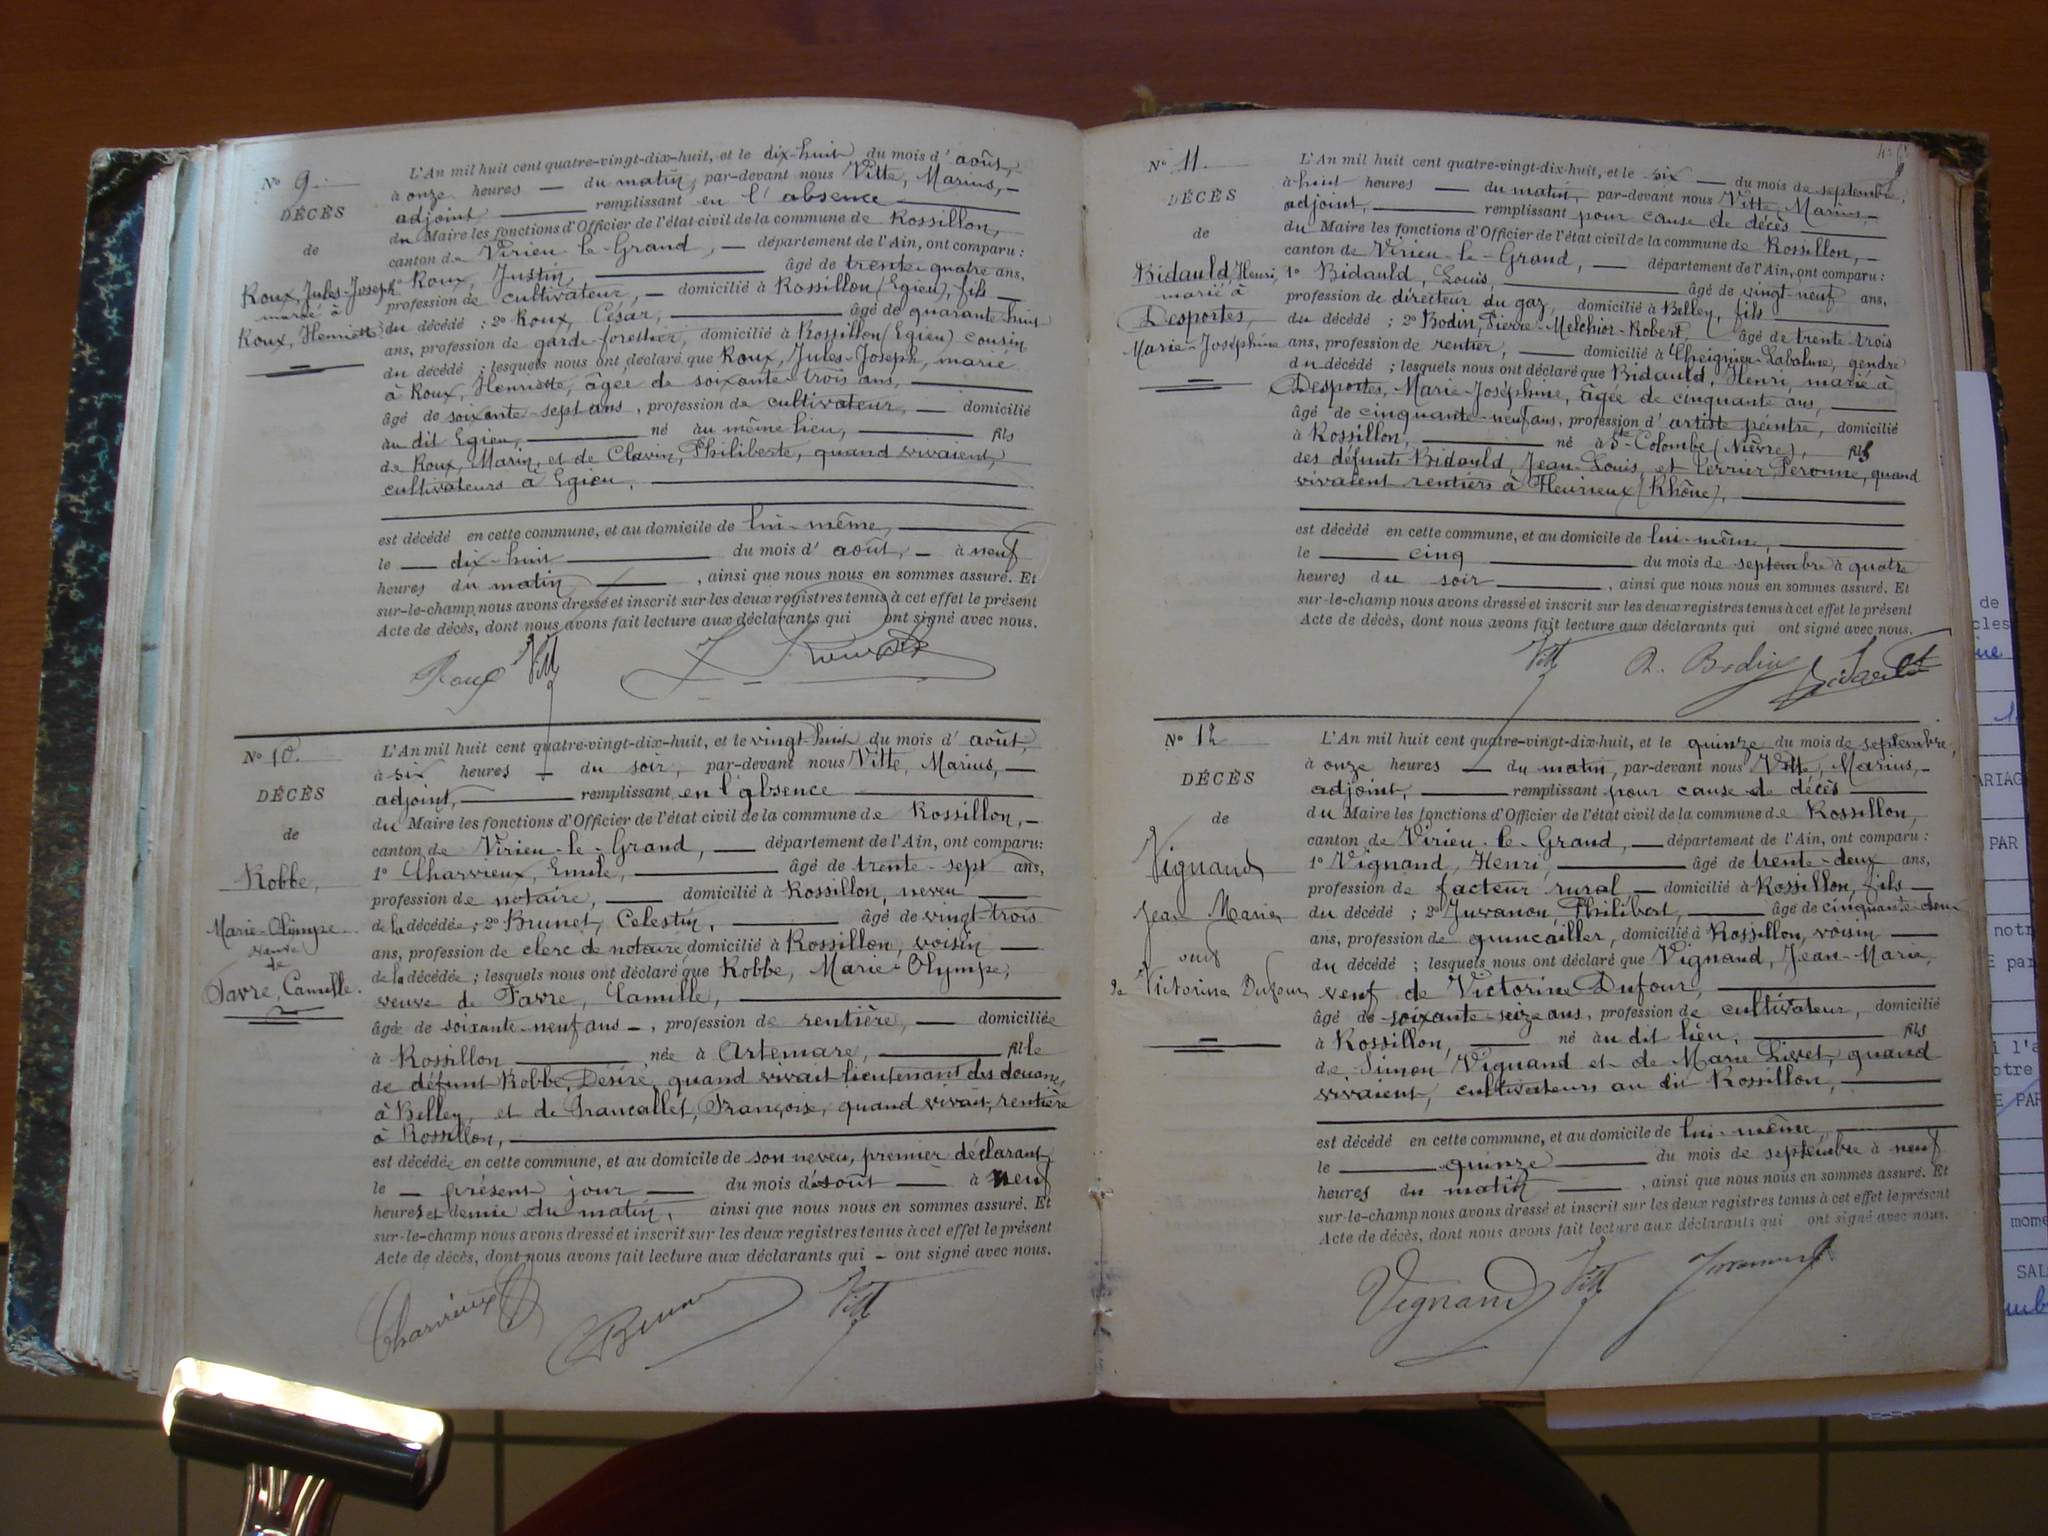 Nº 9.
DÉCÈS
de
Roux, Jules-Joseph
marié à
Roux, Henriette
L'An mil huit cent quatre-vingt-dix-huit, et le dix-huit du mois d'août,
à onze heures — du matin, par-devant nous Vitte, Marius, —
adjoint remplissant en l'absence
du Maire les fonctions d'Officier de l'état civil de la commune de Rossillon,
canton de Virieu-le-Grand, — département de l'Ain, ont comparu :
1º Roux, Justin, âgé de trente-quatre ans,
profession de cultivateur, — domicilié à Rossillon (Egieu), fils
du décédé ; 2º Roux, César, âgé de quarante-huit
ans, profession de garde-forestier, domicilié à Rossillon (Egieu) cousin
du décédé ; lesquels nous ont déclaré que Roux, Jules-Joseph, marié
à Roux, Henriette, âgée de soixante-trois ans,
âgé de soixante-sept ans, profession de cultivateur, — domicilié
au dit Egieu, né au même lieu, fils
de Roux, Marin, et de Clavin, Philiberte, quand vivaient,
cultivateurs à Egieu,
est décédé en cette commune, et au domicile de lui-même,
le — dix-huit du mois d'août, — à neuf
heures du matin, ainsi que nous nous en sommes assuré. Et
sur-le-champ nous avons dressé et inscrit sur les deux registres tenus à cet effet le présent
Acte de décès, dont nous avons fait lecture aux déclarants qui ont signé avec nous.
Roux Vitte
Nº 10.
DÉCÈS
de
Robbe,
Marie-Olympe
veuve
de
Favre, Camille.
L'An mil huit cent quatre-vingt-dix-huit, et le vingt-huit du mois d'août,
à six heures — du soir, par-devant nous Vitte, Marius, —
adjoint, remplissant en l'absence
du Maire les fonctions d'Officier de l'état civil de la commune de Rossillon, —
canton de Virieu-le-Grand, — département de l'Ain, ont comparu :
1º Charvieux, Emile, âgé de trente-sept ans,
profession de notaire, — domicilié à Rossillon, neveu
de la décédée ; 2º Brunet, Celestin, âgé de vingt-trois
ans, profession de clerc de notaire, domicilié à Rossillon, voisin —
de la décédée ; lesquels nous ont déclaré que Robbe, Marie-Olympe,
veuve de Favre, Camille,
âgée de soixante-neuf ans —, profession de rentière, — domiciliée
à Rossillon née à Artemare, fille
de défunt Robbe, Désiré, quand vivait lieutenant des douanes
à Belley, et de Françoise, quand vivait, rentière
à Rossillon,
est décédée en cette commune, et au domicile de son neveu, premier déclarant
le — présent jour — du mois d'août — à neuf
heures et demie du matin, ainsi que nous nous en sommes assuré. Et
sur-le-champ nous avons dressé et inscrit sur les deux registres tenus à cet effet le présent
Acte de décès, dont nous avons fait lecture aux déclarants qui — ont signé avec nous.
Charvieux Brunet Vitte
Nº 11.
DÉCÈS
de
Bidauld, Henri,
marié à
Desportes,
Marie-Joséphine
L'An mil huit cent quatre-vingt-dix-huit, et le six — du mois de septembre,
à huit heures — du matin, par-devant nous Vitte, Marius, —
adjoint, remplissant pour cause de décès
du Maire les fonctions d'Officier de l'état civil de la commune de Rossillon, —
canton de Virieu-le-Grand, — département de l'Ain, ont comparu :
1º Bidauld, Louis, âgé de vingt-neuf ans,
profession de directeur du gaz, domicilié à Belley, fils
du décédé ; 2º Bodin, Pierre-Melchior-Robert, âgé de trente-trois
ans, profession de rentier, — domicilié à Cheignieu-Labalme, gendre
du décédé ; lesquels nous ont déclaré que Bidauld, Henri, marié à
Desportes, Marie-Joséphine, âgée de cinquante ans,
âgé de cinquante-neuf ans, profession d'artiste peintre, domicilié
à Rossillon, né à Ste-Colombe (Nièvre), fils
des défunts Bidauld, Jean-Louis, et Perronne, quand
vivaient rentiers à Fleurieux (Rhône),
est décédé en cette commune, et au domicile de lui-même,
le cinq du mois de septembre à quatre
heures du soir, ainsi que nous nous en sommes assuré. Et
sur-le-champ nous avons dressé et inscrit sur les deux registres tenus à cet effet le présent
Acte de décès, dont nous avons fait lecture aux déclarants qui ont signé avec nous.
Vitte R. Bodin Bidauld
Nº 12
DÉCÈS
de
Vignand
Jean Marie
veuf
de Victorine Dufour
L'An mil huit cent quatre-vingt-dix-huit, et le quinze du mois de septembre,
à onze heures — du matin, par-devant nous Vitte, Marius, —
adjoint, remplissant pour cause de décès
du Maire les fonctions d'Officier de l'état civil de la commune de Rossillon,
canton de Virieu-le-Grand, — département de l'Ain, ont comparu :
1º Vignand, Henri, âgé de trente-deux ans,
profession de facteur rural — domicilié à Rossillon, fils —
du décédé ; 2º Juvanon, Philibert, âgé de cinquante-deux
ans, profession de quincailler, domicilié à Rossillon, voisin —
du décédé ; lesquels nous ont déclaré que Vignand, Jean-Marie,
veuf de Victorine Dufour,
âgé de soixante-seize ans, profession de cultivateur, domicilié
à Rossillon, né au dit lieu, fils
de Simon Vignand et de Marie quand
vivaient, cultivateurs au dit Rossillon,
est décédé en cette commune, et au domicile de lui-même,
le quinze du mois de septembre à neuf
heures du matin, ainsi que nous nous en sommes assuré. Et
sur-le-champ nous avons dressé et inscrit sur les deux registres tenus à cet effet le présent
Acte de décès, dont nous avons fait lecture aux déclarants qui ont signé avec nous.
Vignand Vitte Juvanon